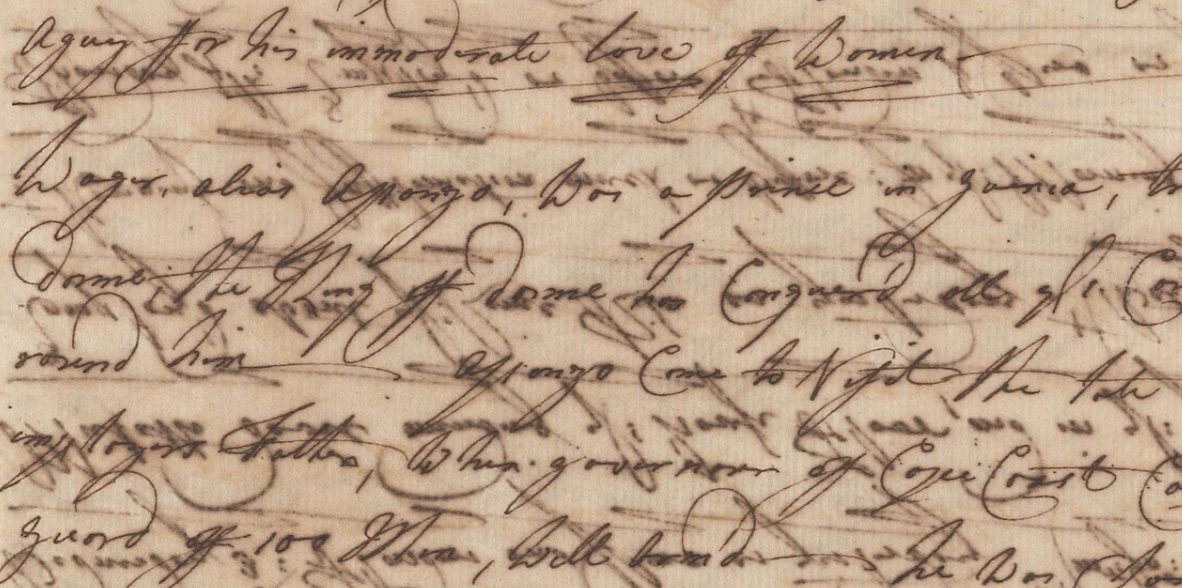 Aguy for his immoderate love of Women
Wager, alias Apongo, was a prince in guinea,
Dome the King of dome has Conquerd all ye Cou
round him Apongo Came to Visit the late
employers Father, When governour of Cape Coast Ca
guard of 100 Men, well armd he was